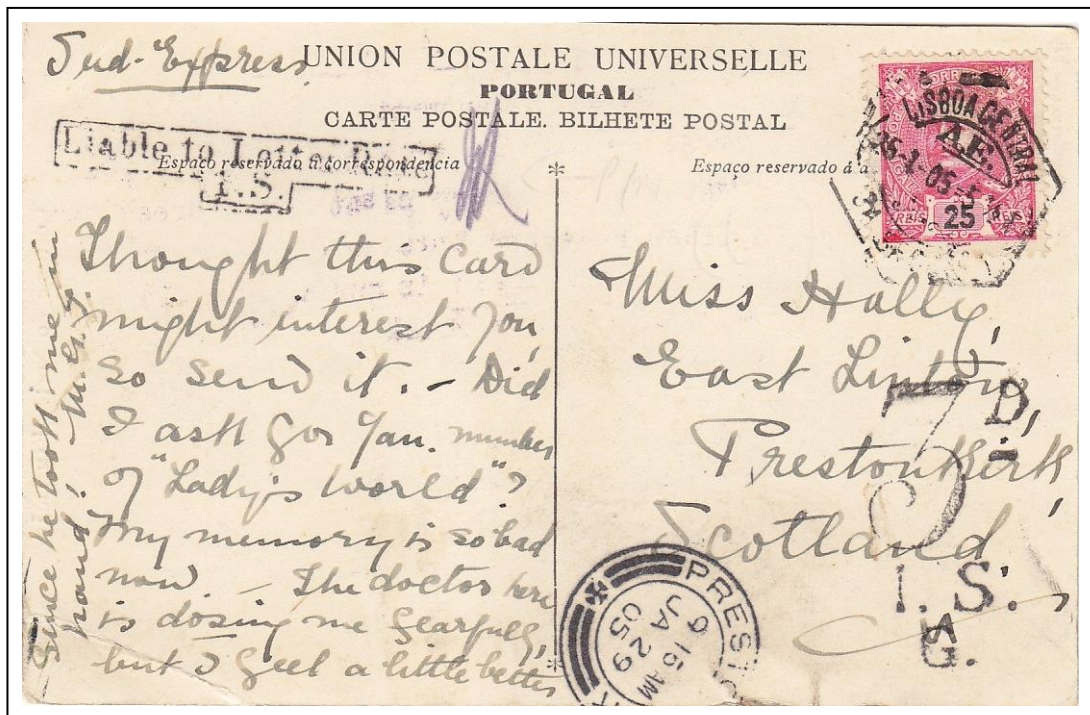 Sud-Express
UNION POSTALE UNIVERSELLE
PORTUGAL
CARTE POSTALE. BILHETE POSTAL
Liable to Letter Rate
I.S.
Espaço reservado á correspondencia
Espaço reservado á
LISBOA CENTRAL
A.E.
05-5
25
REIS
Thought this card
might interest you,
so send it. - Did
I ask for Jan. number
of "Lady's World"?
My memory is so bad
now. - The doctor here
is dosing me fearfully,
but I feel a little better
since he took me in
hand!
Miss Hally,
East Linton,
Prestonkirk,
Scotland.
D.
I.S.
G.
PRESTO
9 15 AM
JA 29
05